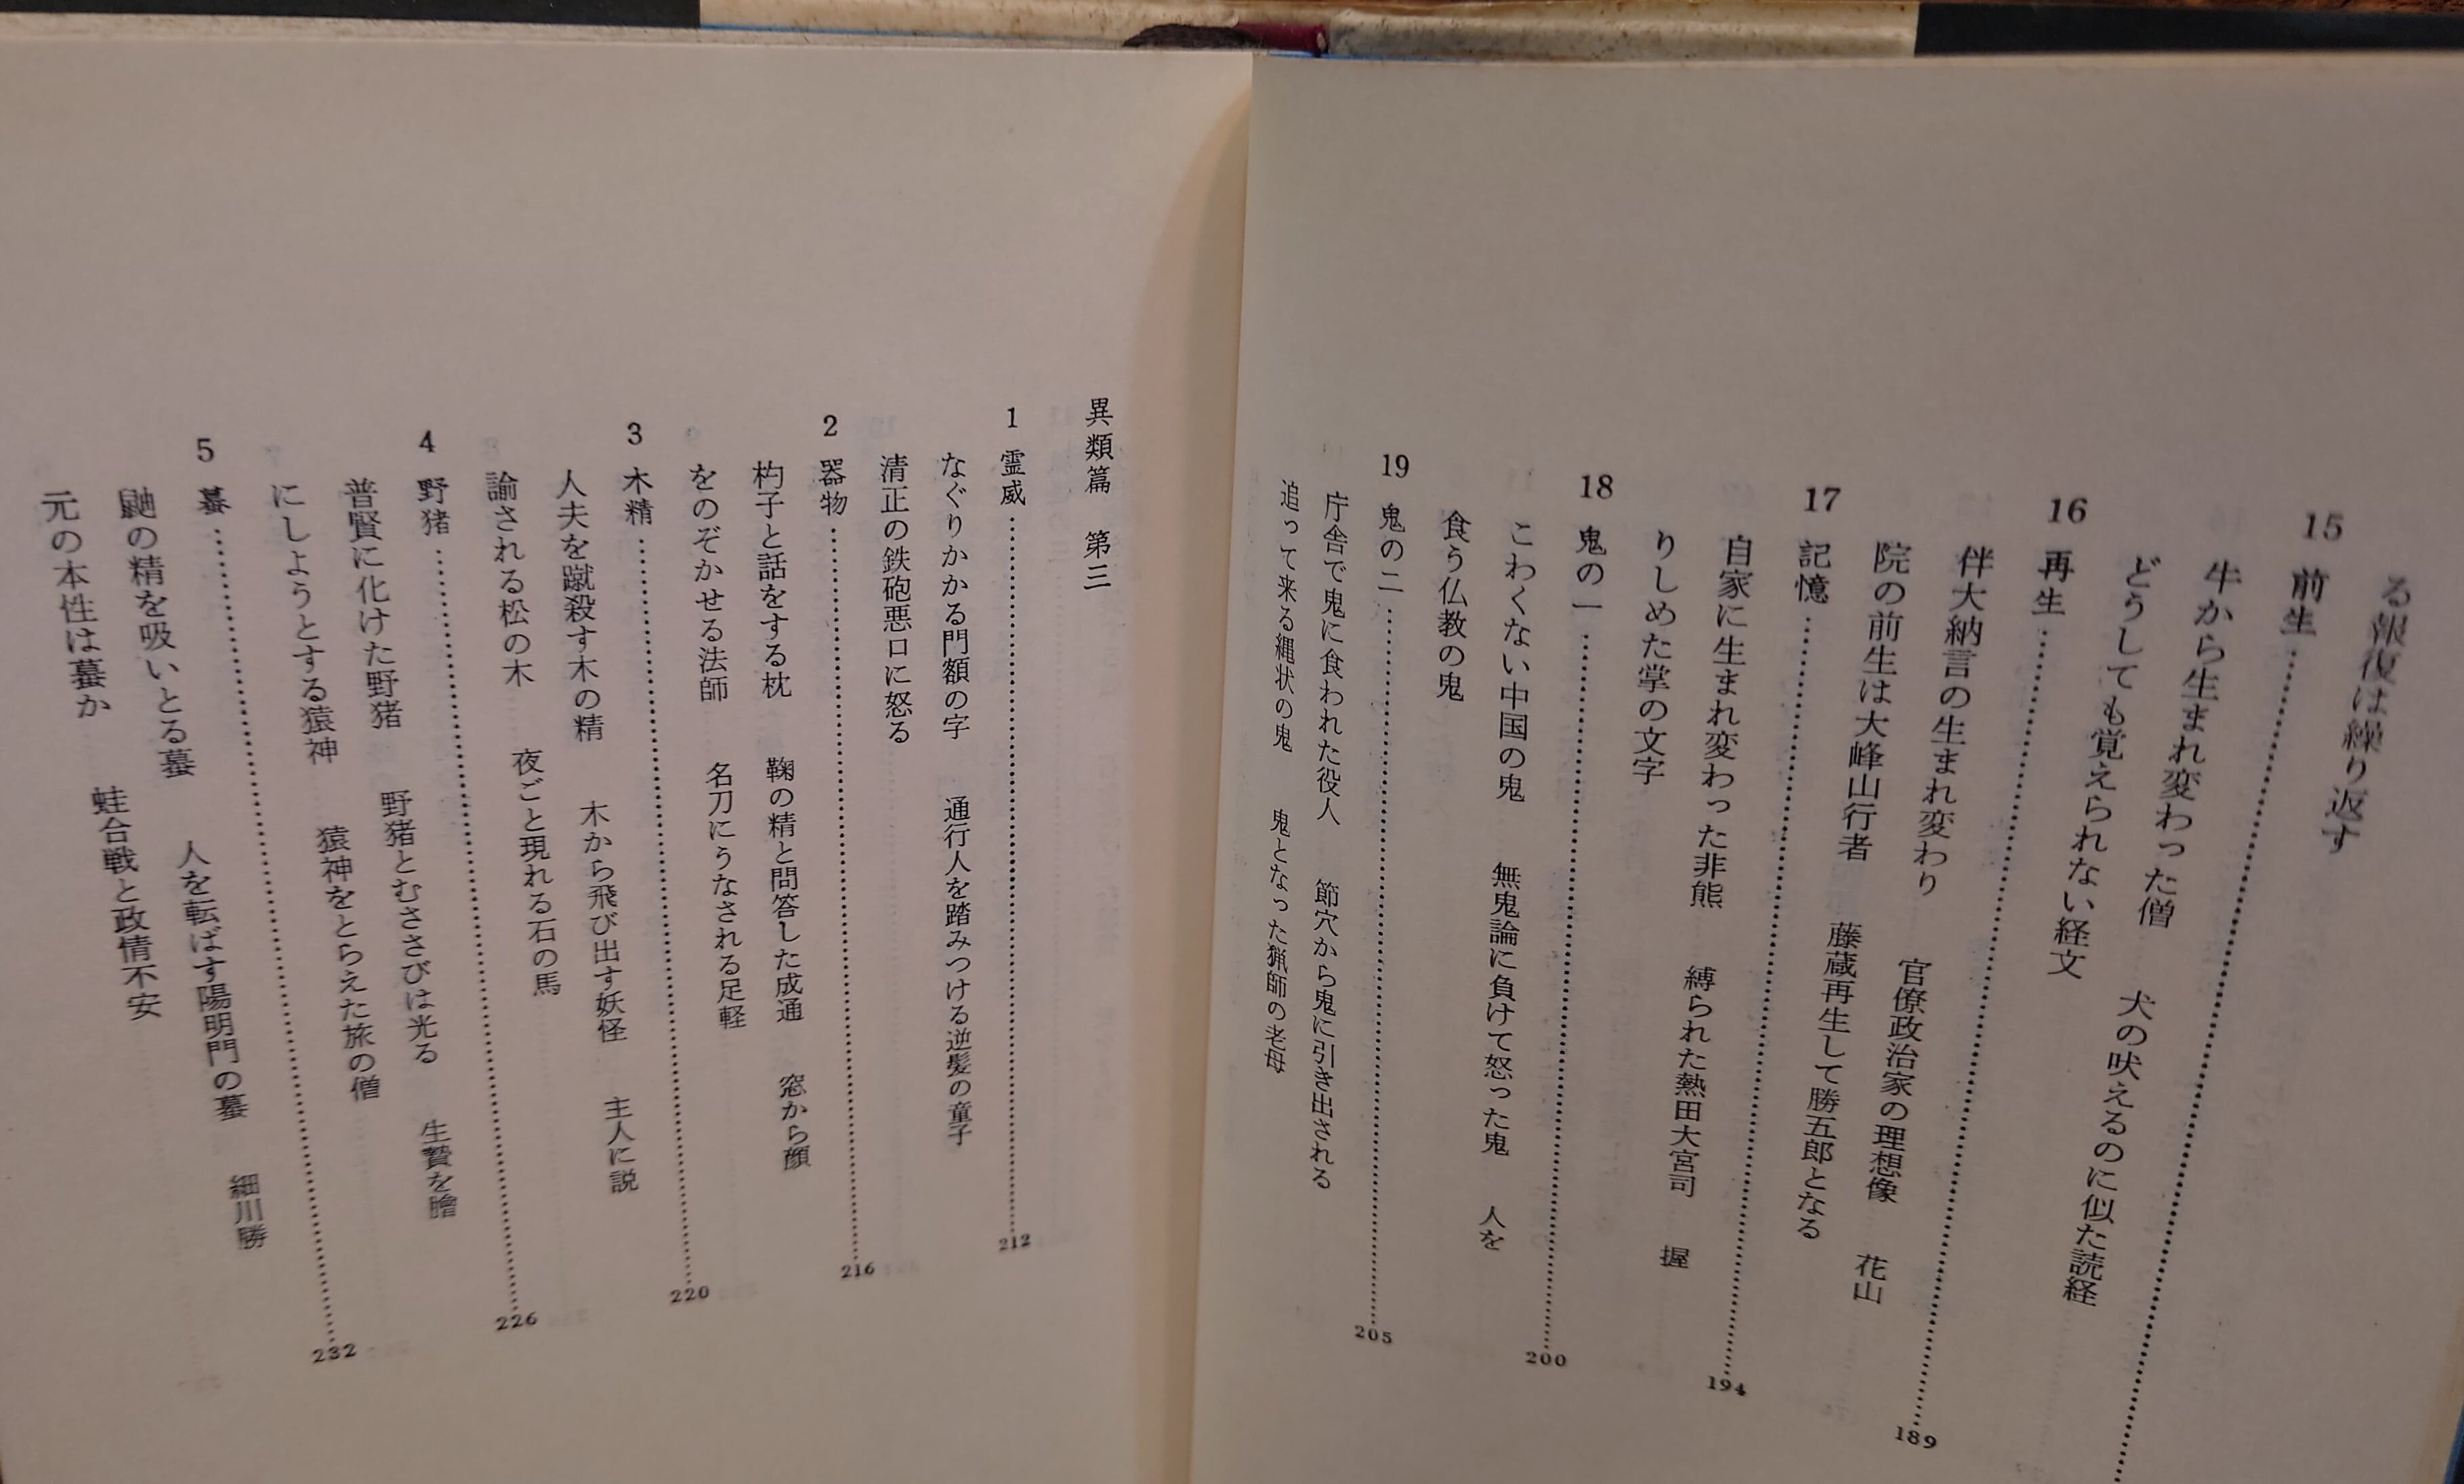 る報復は繰り返す
15 前生
牛から生まれ変わった僧 犬の吠えるのに似た読経
どうしても覚えられない経文
16 再生 189
伴大納言の生まれ変わり 官僚政治家の理想像 花山
院の前生は大峰山行者 藤蔵再生して勝五郎となる
17 記憶 194
自家に生まれ変わった非熊 縛られた熱田大宮司 握
りしめた掌の文字
18 鬼の一 200
こわくない中国の鬼 無鬼論に負けて怒った鬼 人を
食う仏教の鬼
19 鬼の二 205
庁舎で鬼に食われた役人 節穴から鬼に引き出される
追って来る縄状の鬼 鬼となった猟師の老母
異類篇 第三
1 霊威 212
なぐりかかる門額の字 通行人を踏みつける逆髪の童子
清正の鉄砲悪口に怒る
2 器物 216
杓子と話をする枕 鞠の精と問答した成通 窓から顔
をのぞかせる法師 名刀にうなされる足軽
3 木精 220
人夫を蹴殺す木の精 木から飛び出す妖怪 主人に説
諭される松の木 夜ごと現れる石の馬
4 野猪 226
普賢に化けた野猪 野猪とむささびは光る 生贄を膾
にしようとする猿神 猿神をとらえた旅の僧
5 蟇 232
鼬の精を吸いとる蟇 人を転ばす陽明門の蟇 細川勝
元の本性は蟇か 蛙合戦と政情不安